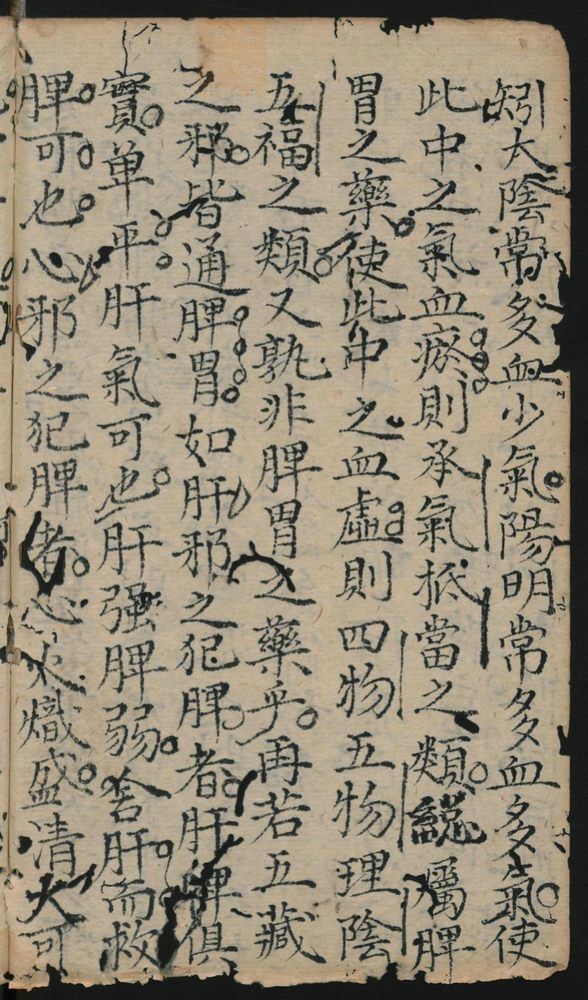 矧太陰常多血少氣陽明常多血多氣使
此中之氣血瘀則承氣抵當之類総屬脾
胃之藥使此中之血虛則四物五物理陰
五福之類又孰非脾胃之藥乎再若五藏
之邪皆通脾胃如肝邪之犯脾者肝脾俱
實单平肝氣可也肝强脾弱舍肝而救
脾可也心邪之犯脾者心火熾盛清火可